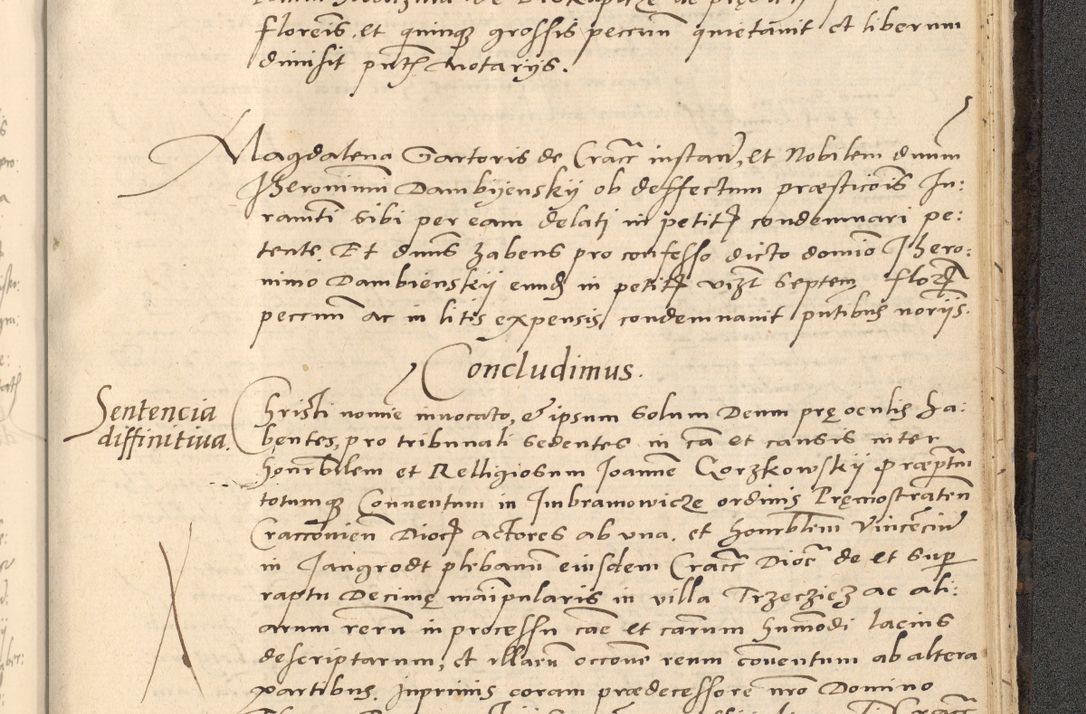 florenis, et quinque grossis pecun quietavit et liberum
dimisit pntℓ Notarijs.
Magdalena Sartoris de Cracc instan, et Nobilem dnum
Iheronimum Dambijenskij ob deffectum præsticiois Iu-
ramti sibi per eam delati in petitℓ condemnari pe:
tente. Et dnus habens pro confesso dicto domio Ihero:
nimo Dambienskij eundℓ in petitℓ vizt septem florℓ
peccum ac in litis expensis condemnavit pntibus norijs.
Concludimus.
Sentencia
diffinitiua.
Christi nomie inuocato, et ipsum solum Deum prę oculis ha:
bentes, pro tribunali sedentes in ca et causis inter
honrbilem et Relligiosum Ioannem Gorzkowskij præptm
totumque Conuentum in Imbramowicze ordinis Pręmostraten
Cracconien Diocℓ actores ab vna. et honrblem Vincēciū
in Jangrodt plebanum eiusdem Cracc Dioc de et super
raptu Decimę maipularis in villa Trzecziez ac ali:
arum rerum in processu cae et carum humodi lacius
descriptarum, et illarum occone reum conuentum ab altera
partibus. Inprimis coram prædecessore nro Domino